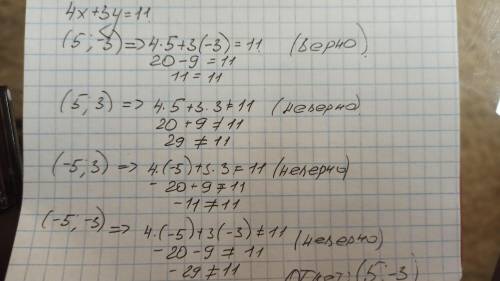 4x+3y=11
(5; -3) => 4·5+3(-3)=11 (верно)
20-9=11
11=11
(5, 3) => 4·5+3·3≠11 (неверно)
20+9≠11
29≠11
(-5, 3) => 4·(-5)+3·3≠11 (неверно)
-20+9≠11
-11≠11
(-5, -3) => 4·(-5)+3(-3)≠11 (неверно)
-20-9≠11
-29≠11
Ответ: (5; -3)